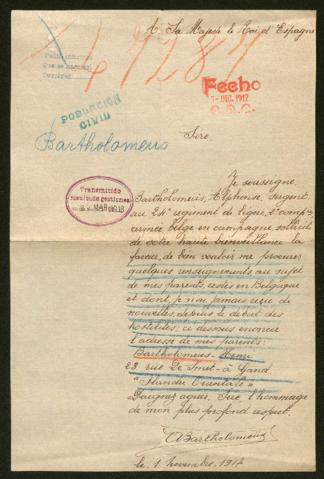 A Sa Majesté le Roi d'Espagne
Fecho
DIC. 1917
POBLACION
CIVIL
Bartholomeus
Sire,
Transmitido
resultado gestiones
22 MAR 1918
Je soussigné,
Bartholomeus, Alphonse, sergent
au 24e régiment de ligne, 2e comp.
armée belge en campagne, sollicite
de votre haute bienveillance la
faveur, de bien vouloir me procurer
quelques renseignements au sujet
de mes parents, restés en Belgique
et dont, je n'ai jamais reçu de
nouvelles, depuis le début des
hostilités; ci dessous énoncé
l'adresse de mes parents:
Bartholomeus - Henri
23 rue De Smet - à Gand.
"Flandre Orientale"
Daignez agréer, Sire, l'hommage
de mon plus profond respect.
ABartholomeus
le 1 novembre 1917